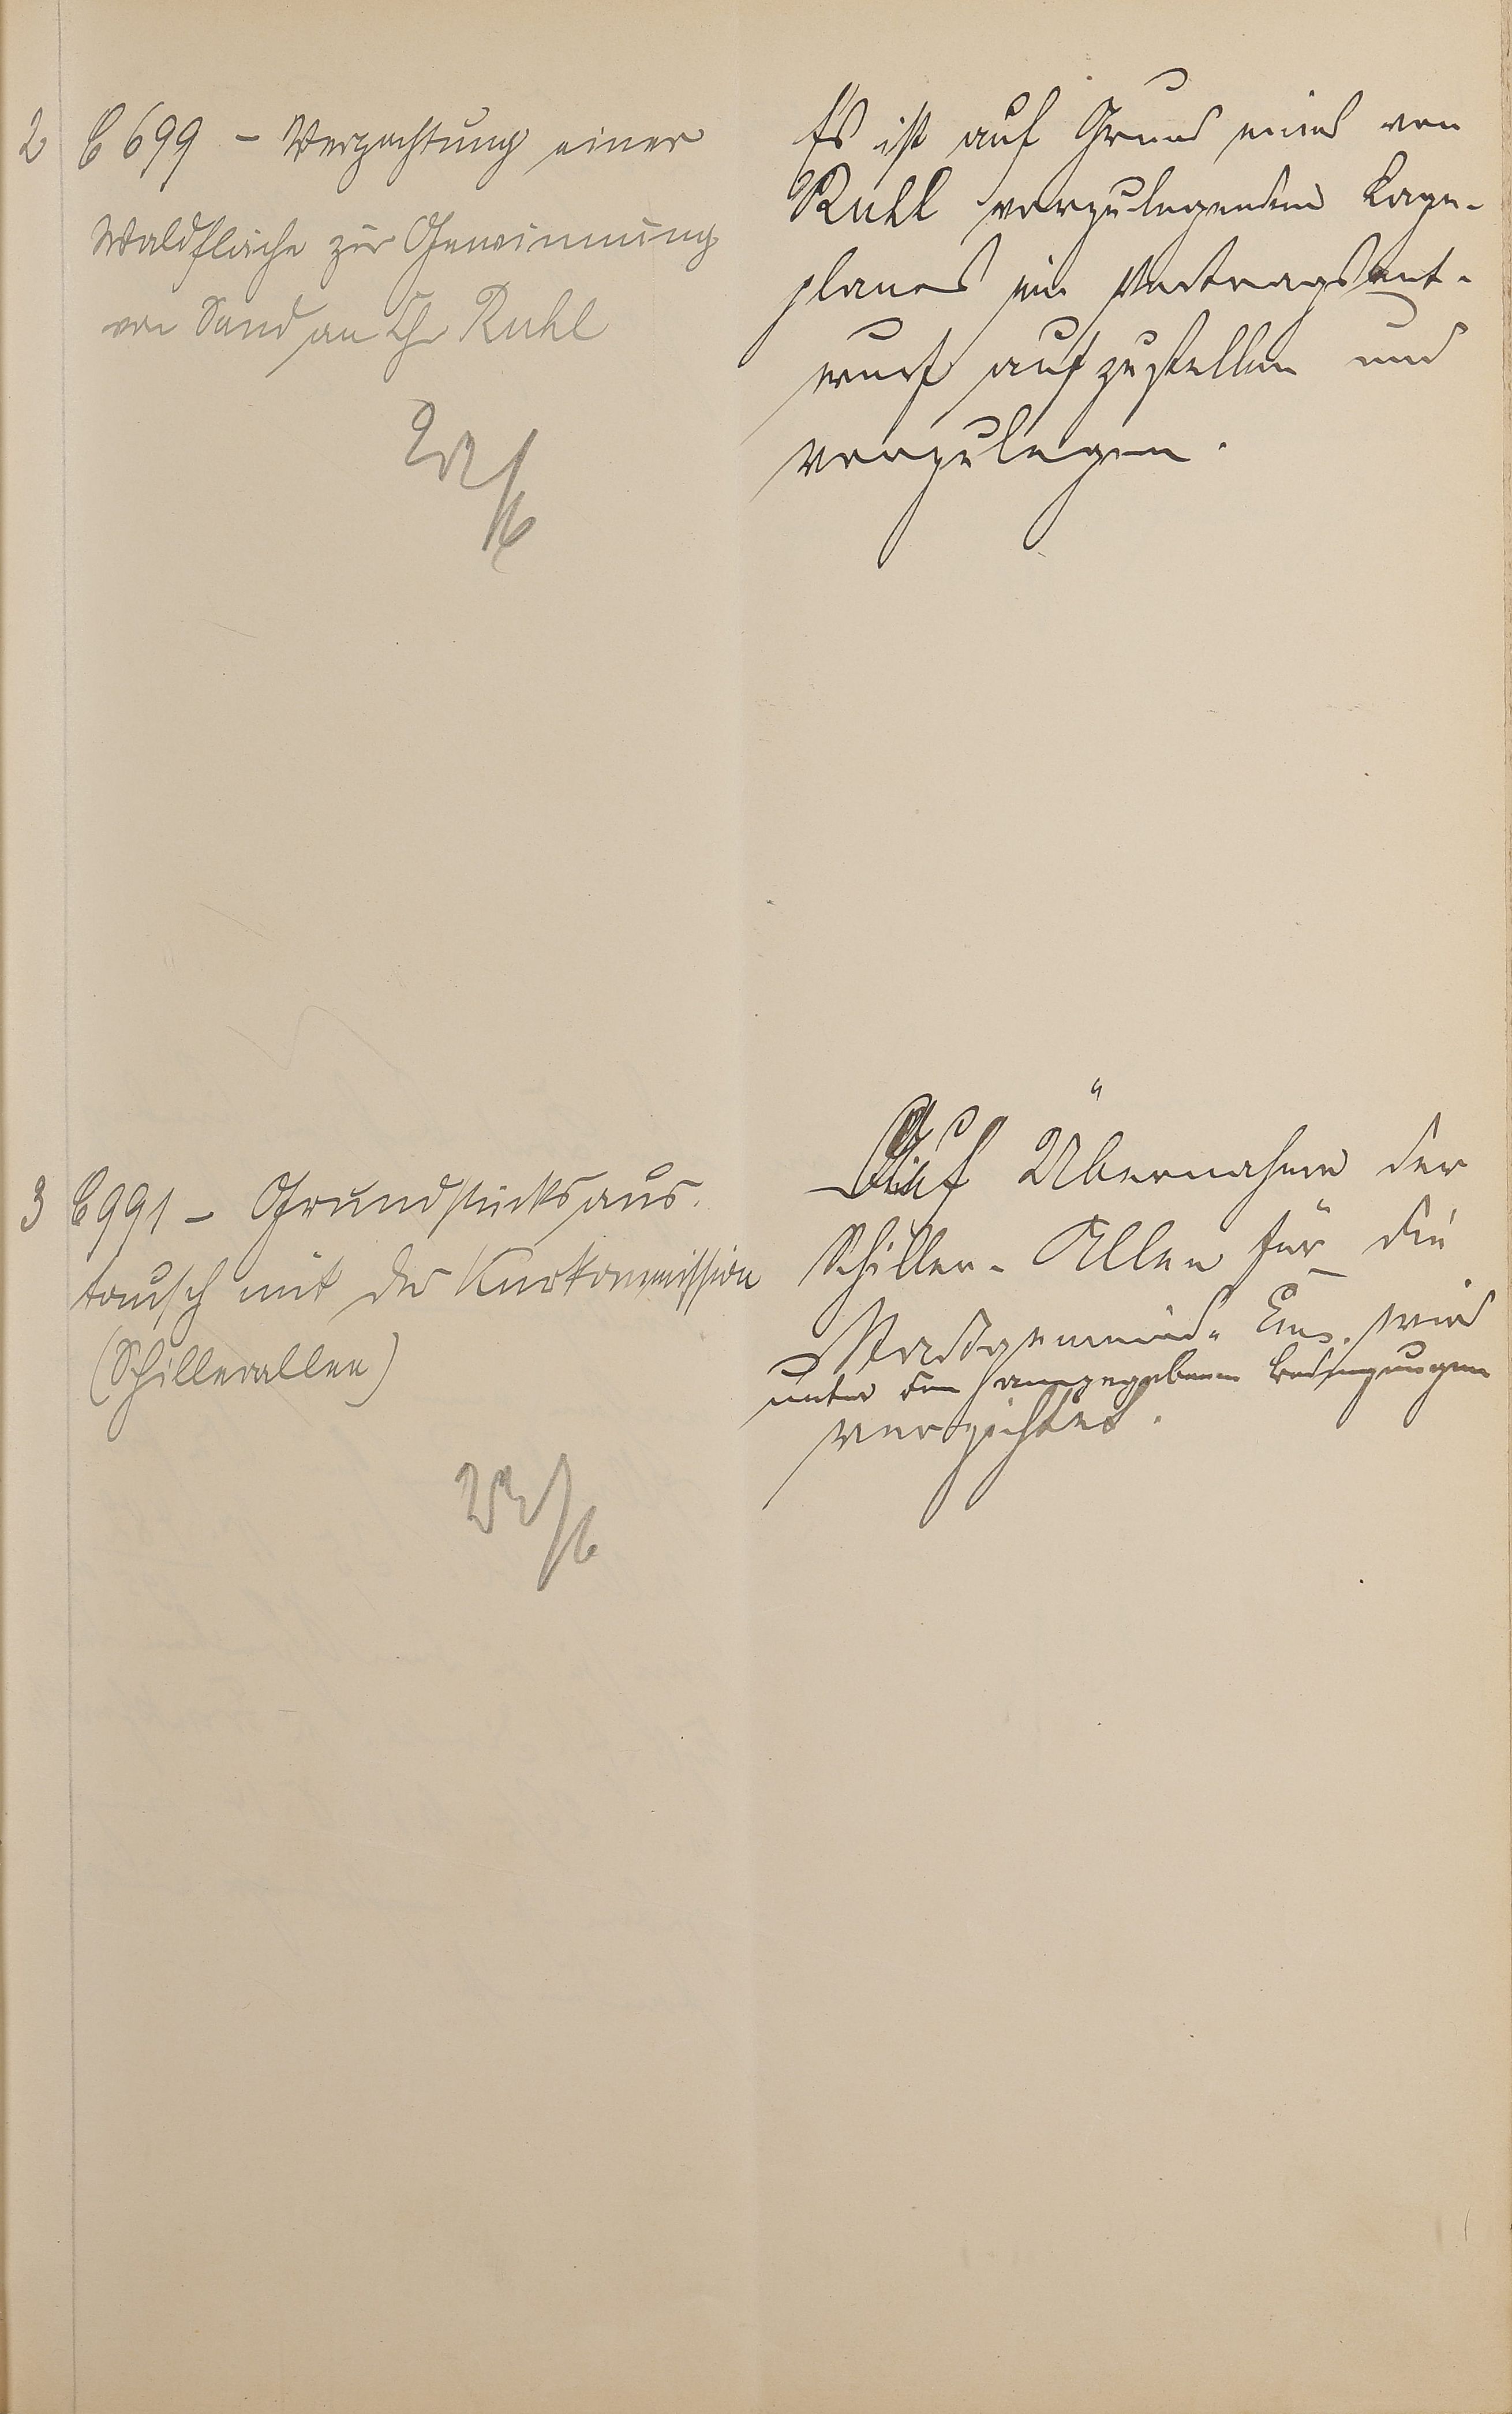 2 C 699 - Verpachtung einer
Waldfläche zur Gewinnung
von Sand an Chr Ruhl
22/6
Es ist auf Grund eines von
Ruhl vorzulegenden Lage-
planes ein Vertragsent-
wurf aufzustellen und
vorzulegen.
3 C 991 - Grundstücksaus-
tausch mit der Kurkommission
(Schillerallee)
22/6
Auf Übernahme der
Schiller-Allee für die
Stadtgemeinde Ems. wird
unter den angegebenen Bedingungen
verzichtet.